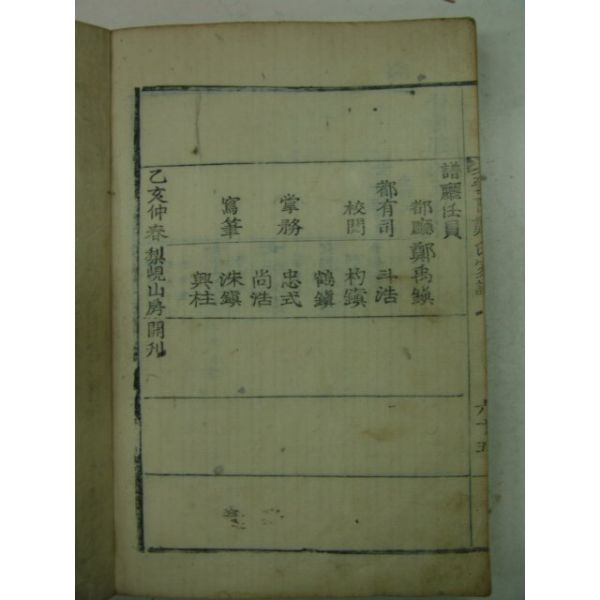 譜廳任員
都廳 鄭禹鎮
都有司 斗浩
校閱 杓鎭
鶴鎭
掌務 忠式
尚浩
寫筆 洙鎭
興柱
乙亥仲春梨峴山房開刊
六十五